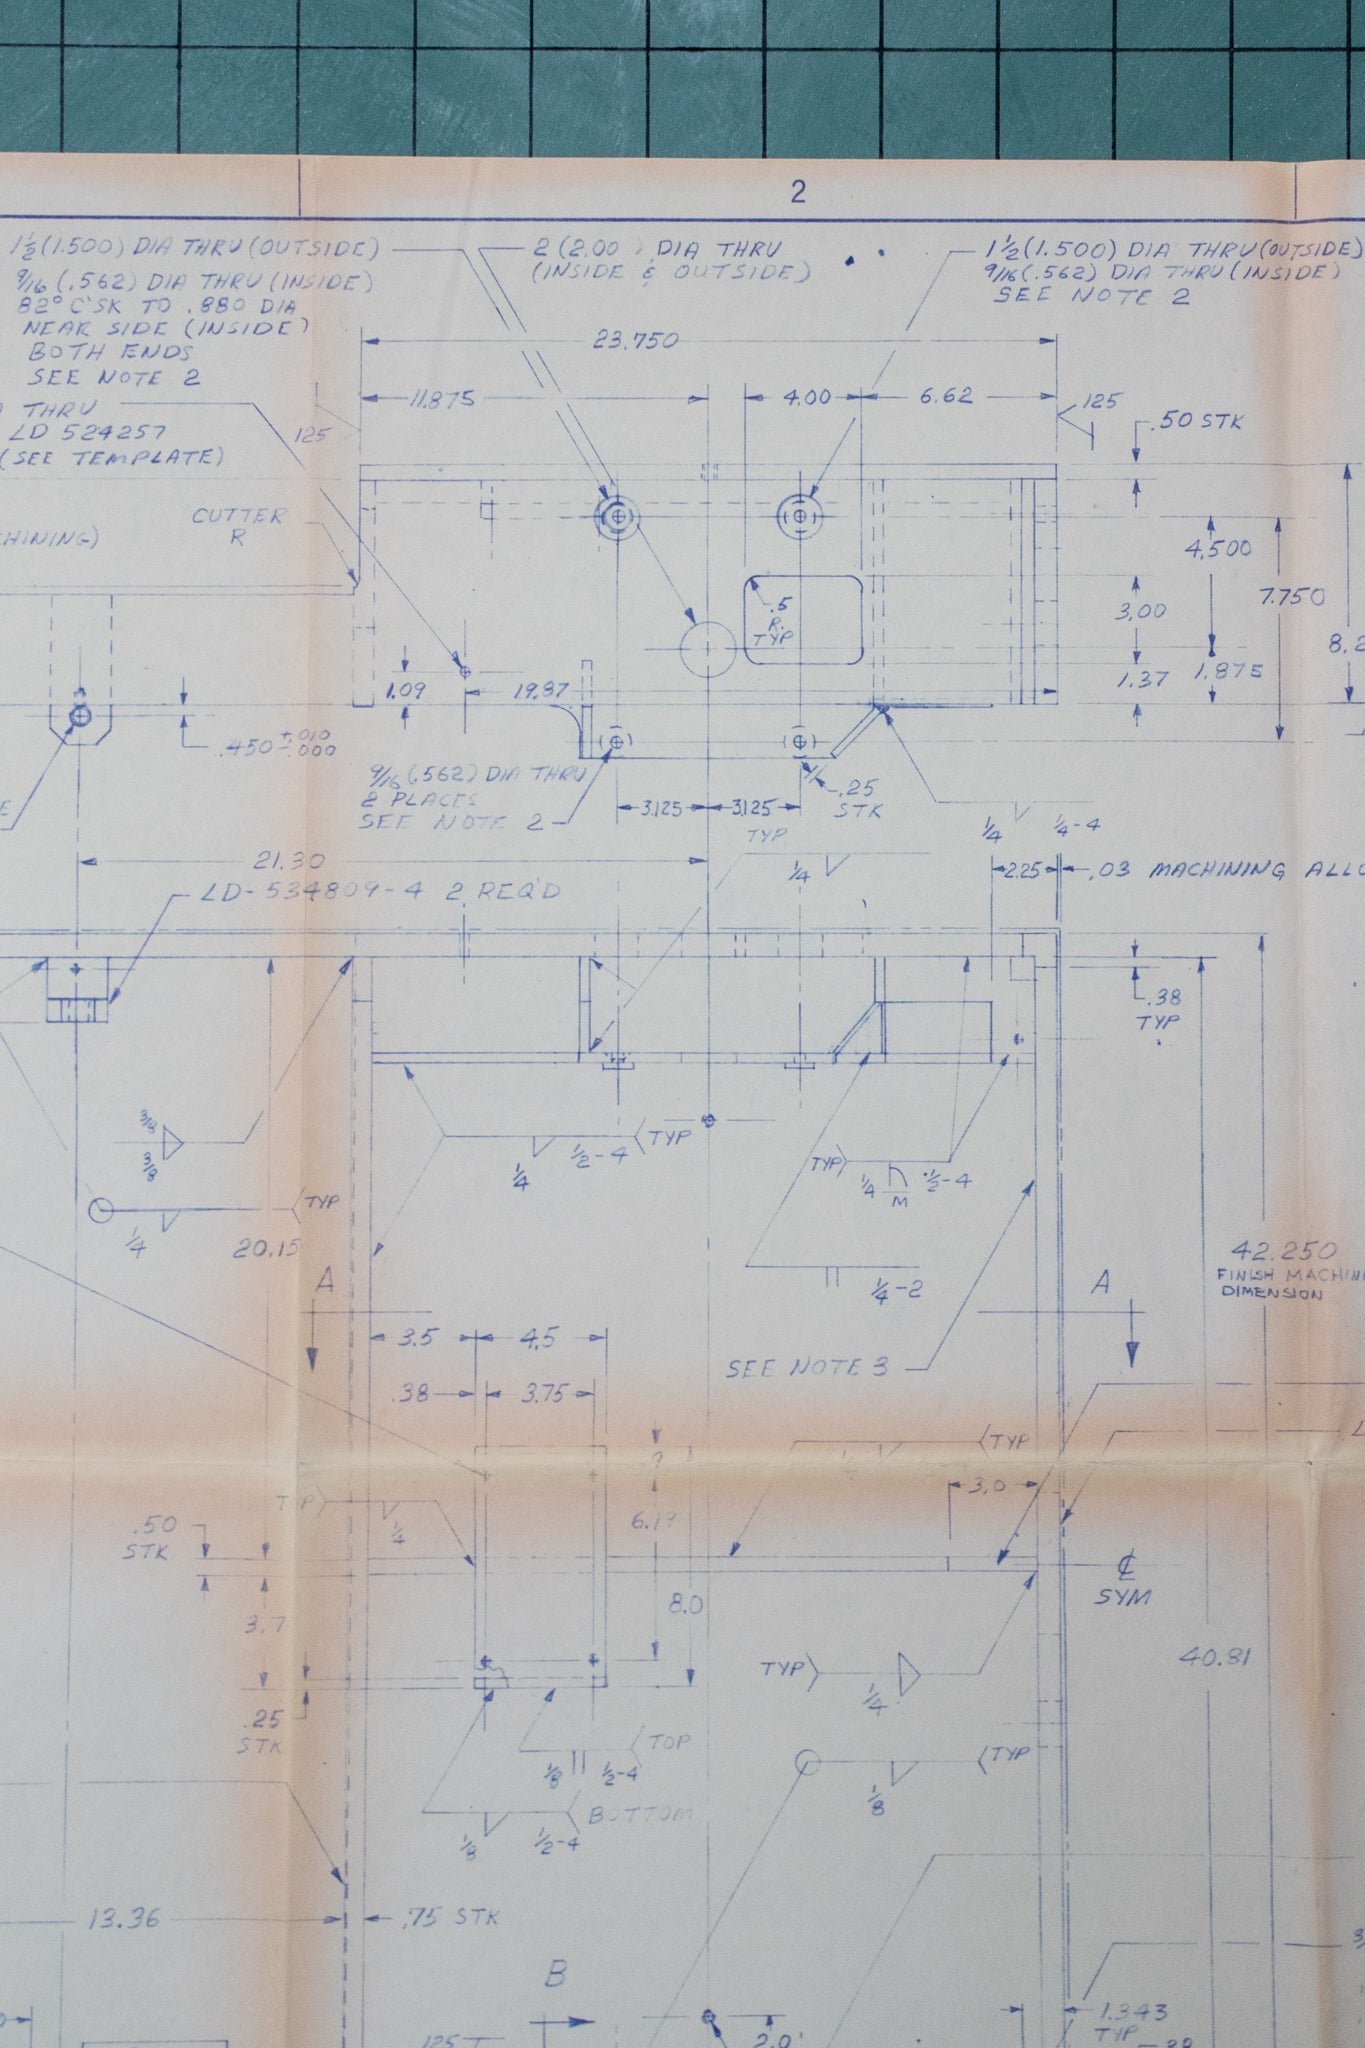 2
1½(1.500) DIA THRU(OUTSIDE)
9/16(.562) DIA THRU(INSIDE)
82° C'SK TO .880 DIA
NEAR SIDE (INSIDE)
BOTH ENDS
SEE NOTE 2
2(2.00 ) DIA THRU
(INSIDE & OUTSIDE)
1½(1.500) DIA THRU(OUTSIDE)
9/16(.562) DIA THRU(INSIDE)
SEE NOTE 2
THRU
LD 524257
(SEE TEMPLATE)
23.750
11.875
4.00
6.62
125
125
.50 STK
CUTTER
R
4.500
7.750
3.00
.5
R.
TYP
1.09
19.87
1.37
1.875
.450 +.010 -.000
9/16(.562) DIA THRU
2 PLACES
SEE NOTE 2
3.125
3.125
.25
STK
TYP
1/4
1/4
1/4-4
21.30
LD-534809-4 2 REQ'D
2.25
.03 MACHINING
.38
TYP
3/8
3/8
1/4
1/2-4
TYP
TYP
1/4
M
1/2-4
1/4
TYP
20.15
1/4-2
42.250
FINISH
DIMENSION
A
A
3.5
4.5
SEE NOTE 3
.38
3.75
TYP
TYP
1/4
3.0
.50
STK
℄
SYM
3.7
8.0
40.81
TYP
1/4
.25
STK
1/8
1/2-4
TOP
TYP
1/8
1/8
1/2-4
BOTTOM
13.36
.75 STK
B
1.343
TYP
125
2.0